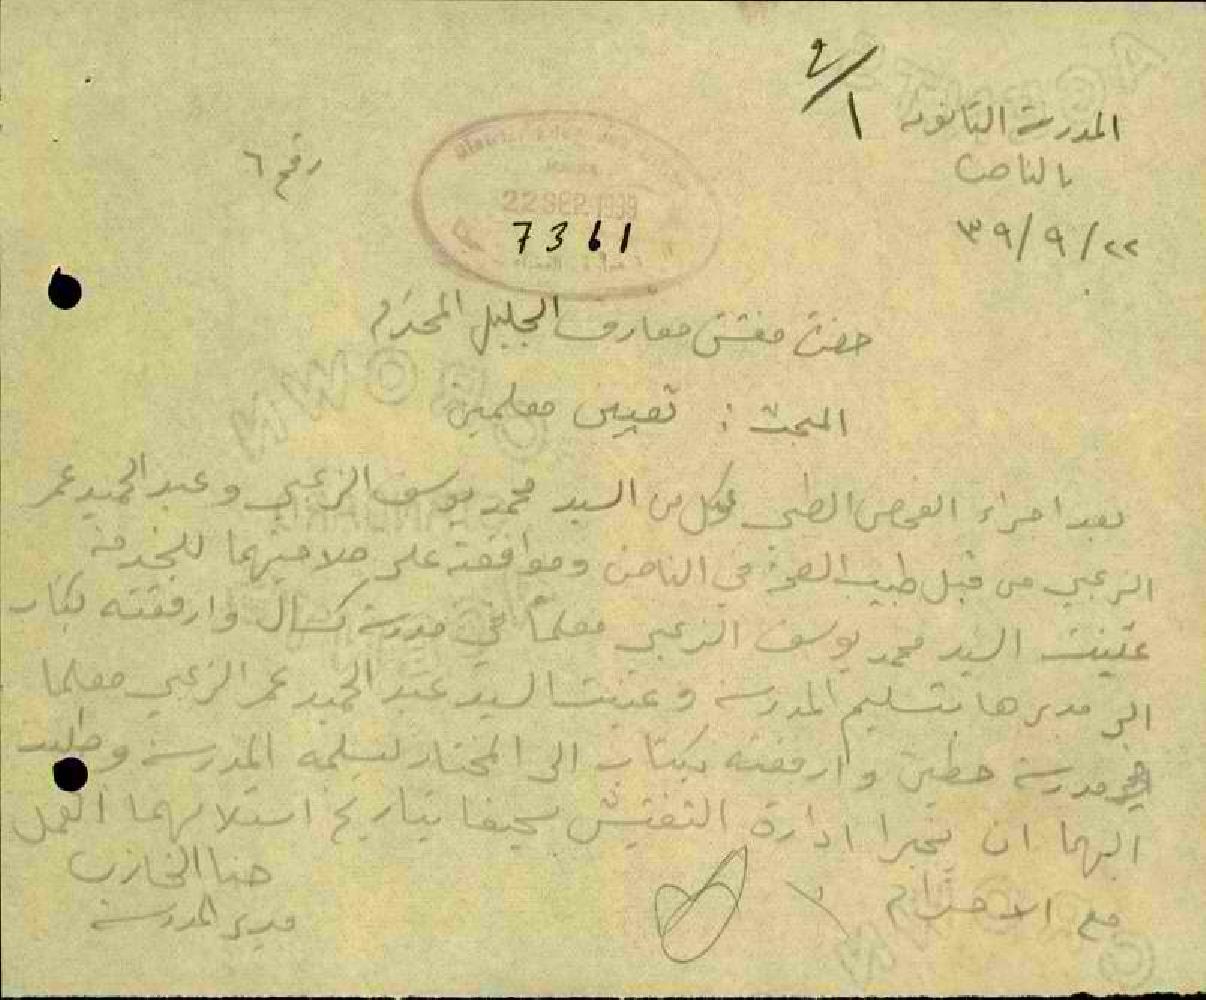 ٢/١
المدرسة الثانوية
بالناصرة
٢٢/٩/٣٩
رقم ٦
22 SEP 1939
7361
حضرة مفتش معارف الجليل المحترم
البحث : تعيين معلمين
بعد اجراء الفحص الطبي لكل من السيد محمد يوسف الزعبي و عبد الحميد عمر
الزعبي من قبل طبيب الصحة في الناصرة وموافقته على صلاحيتهما للخدمة
عينت السيد محمد يوسف الزعبي معلماً في مدرسة كسال وارفقته بكتاب
الى مديرها بتسليم المدرسة وعينت السيد عبد الحميد عمر الزعبي معلما
في مدرسة حطين وارفقته بكتاب الى المختار لتسليمه المدرسة وطلبت
اليهما ان يخبرا ادارة التفتيش بحيفا بتاريخ استلامهما العمل
مع الاحترام
حنا الخازن
مدير المدرسة
CROWN